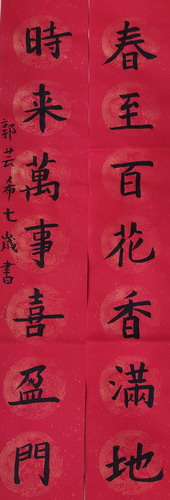 春至百花香滿地
時来萬事喜盈門
郭芸希七歲書